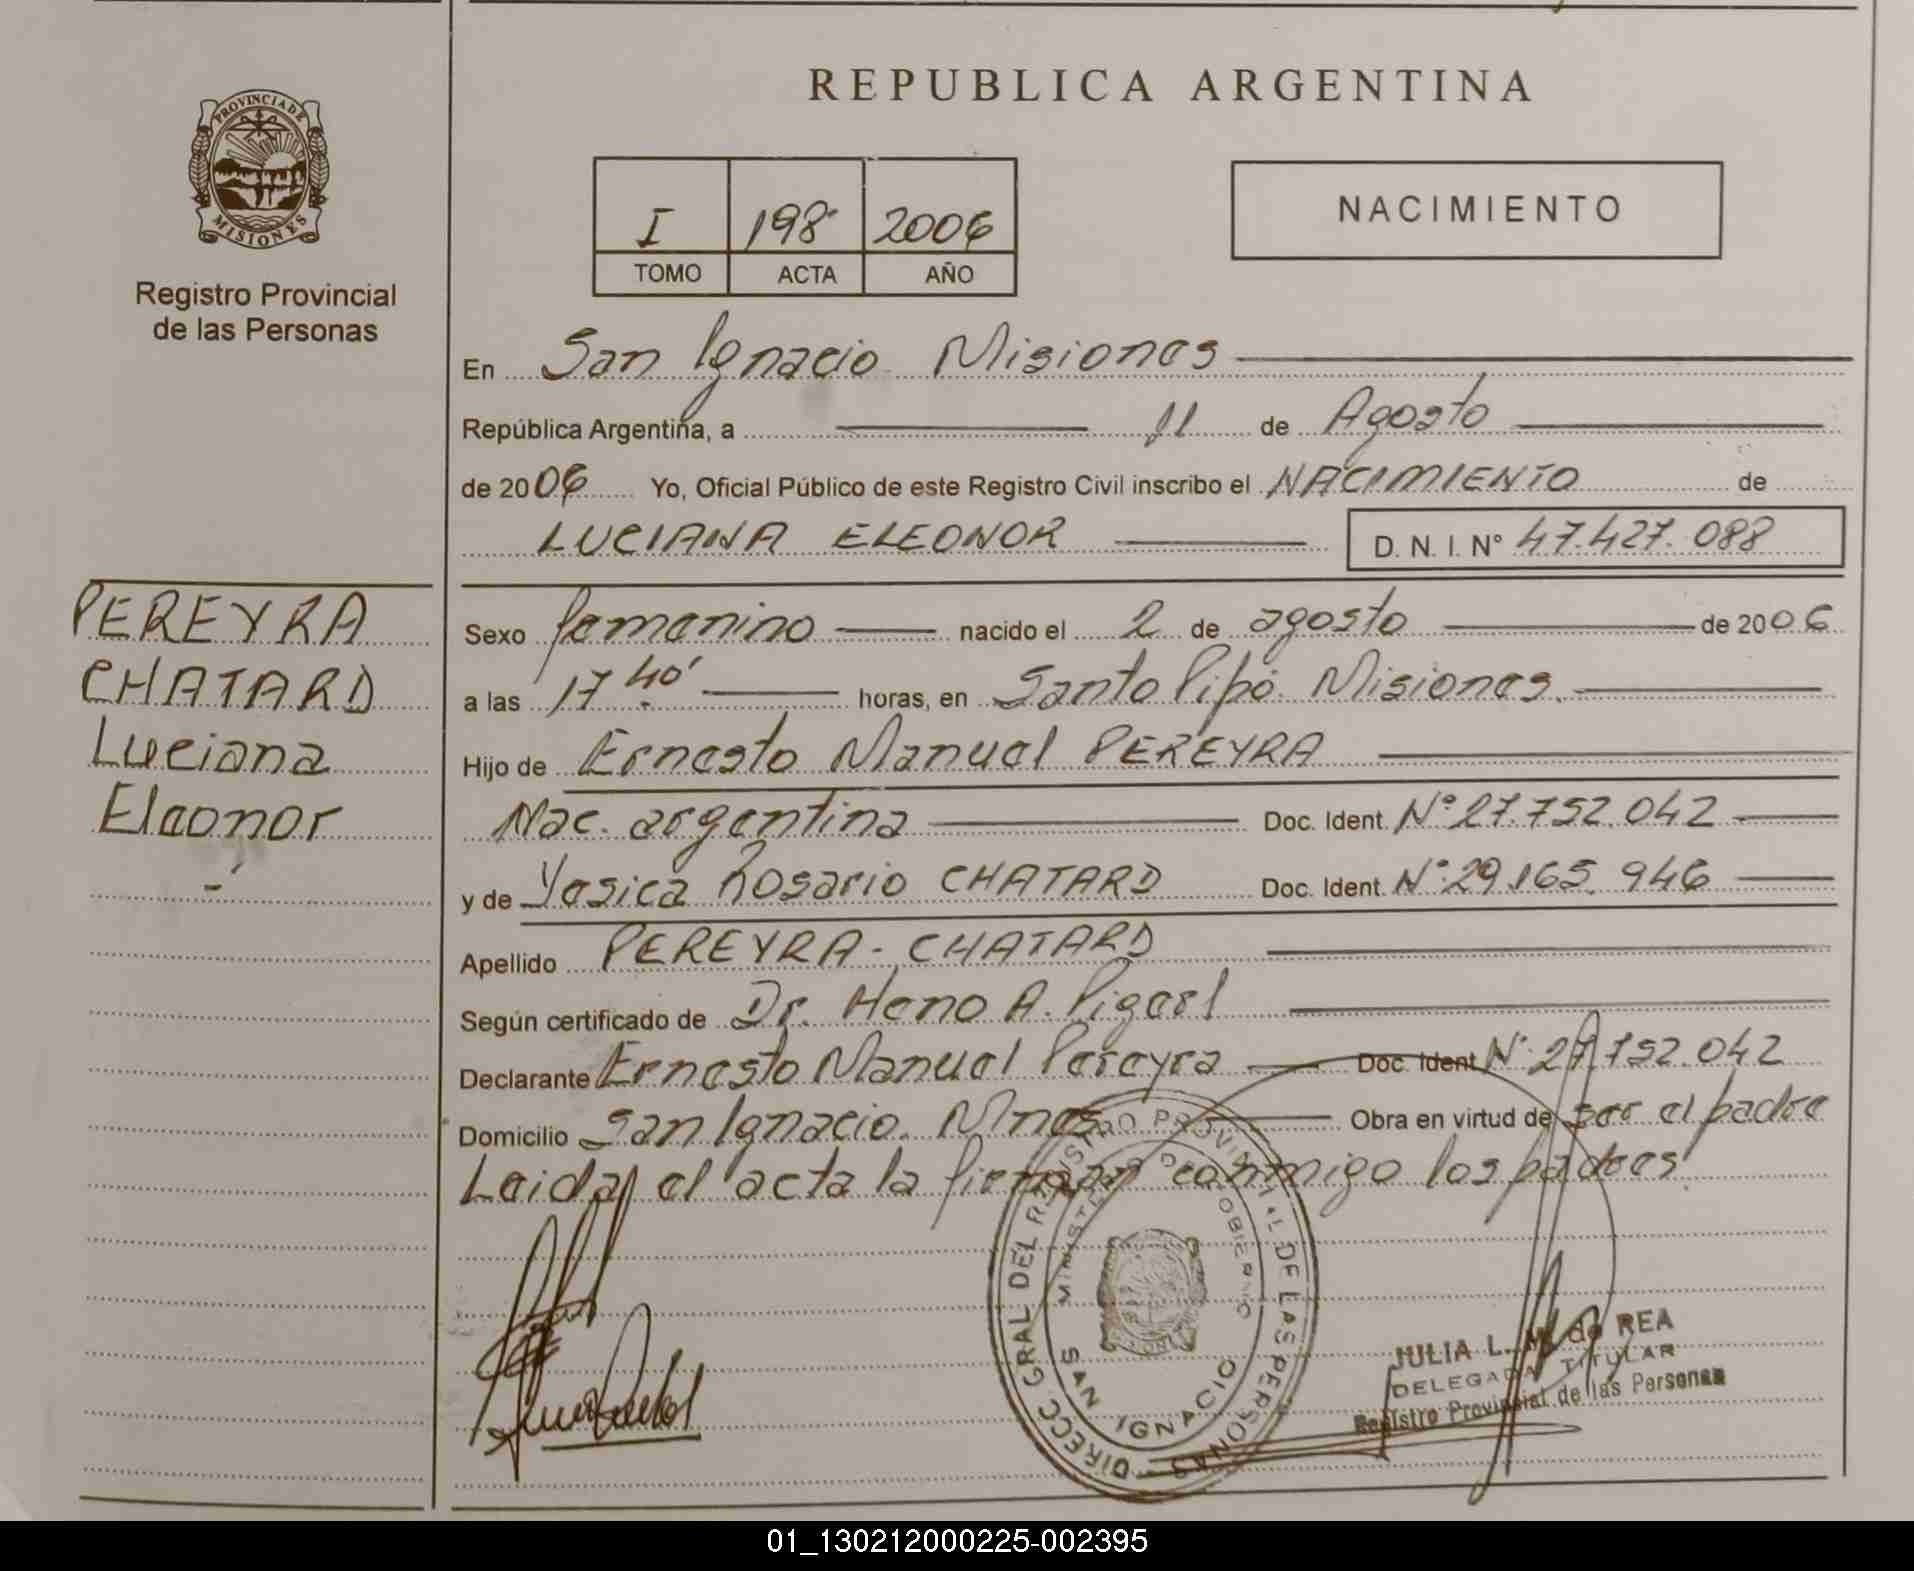 REPUBLICA ARGENTINA
PROVINCIA DE
MISIONES
Registro Provincial
de las Personas
I 198 2006
TOMO ACTA AÑO
NACIMIENTO
En San Ignacio Misiones
República Argentina, a 11 de Agosto
de 2006 Yo, Oficial Público de este Registro Civil inscribo el NACIMIENTO de
LUCIANA ELEONOR D. N. I. N° 47.427.088
PEREYRA
CHATARD
Luciana
Eleonor
Sexo femenino nacido el 2 de agosto de 2006
a las 17.40' horas, en Santo Pipó. Misiones.
Hijo de Ernesto Manuel PEREYRA
Nac. argentina Doc. Ident. N° 27.752.042
y de Yesica Rosario CHATARD Doc. Ident. N° 29.165.946
Apellido PEREYRA - CHATARD
Según certificado de Dr. A.
Declarante Ernesto Manuel Pereyra Doc. Ident. N° 27.752.042
Domicilio San Ignacio. Mnes Obra en virtud de ser el padre
Leida el acta la firman conmigo los padres.
DIRECC. GRAL DEL REGISTRO PROVINCIAL DE LAS PERSONAS
MINISTERIO DE GOBIERNO
SAN IGNACIO
JULIA L. M. de REA
DELEGADA TITULAR
Registro Provincial de las Personas
01_130212000225-002395